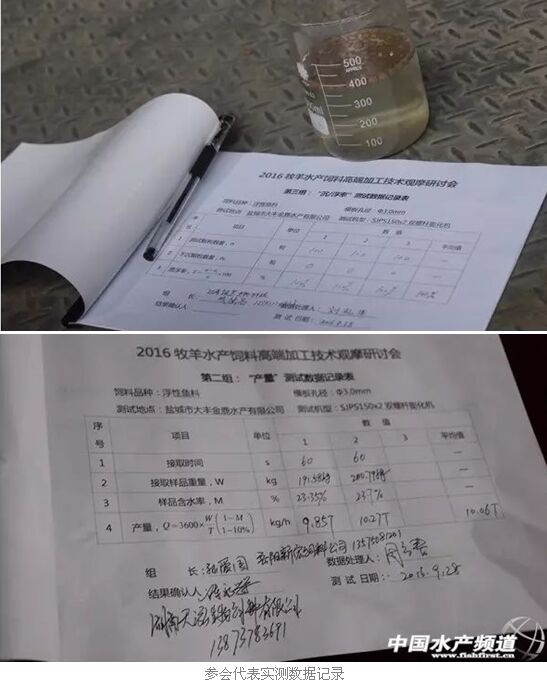 500
400
300
200
100
2016牧羊水产饲料高端加工技术观摩研讨会
第三组："沉/浮率"测试数据记录表
饲料品种：浮性鱼料 模板孔径：Φ3.0mm
测试地点：盐城市大丰金鹿水产有限公司 测试机型：SJPS150x2 双螺杆膨化机
序号 项目 单位 数值 平均值
1 2 3
1 测试颗粒数量, n 粒
粒 0 0 0
3
组 长：
结果确认人： 数据处理人：
测 试 日期：
2016牧羊水产饲料高端加工技术观摩研讨会
第二组："产量"测试数据记录表
饲料品种：浮性鱼料 模板孔径：Φ3.0mm
测试地点：盐城市大丰金鹿水产有限公司 测试机型：SJPS150x2 双螺杆膨化机
序号 项目 单位 数值 平均值
1 2 3
1 接取时间 s 60 60 —
2 接取样品重量，W kg 191.58kg —
3 样品含水率，M % 23.35% 23.7% —
4 产量，Q=3600×W/T(1-M/1-10%) kg/h 9.85T 10.27T 10.06T
组 长：
结果确认人： 数据处理人：
测 试 日期： 2016.9.28
13873783691
中国水产频道
www.fishfirst.cn
参会代表实测数据记录